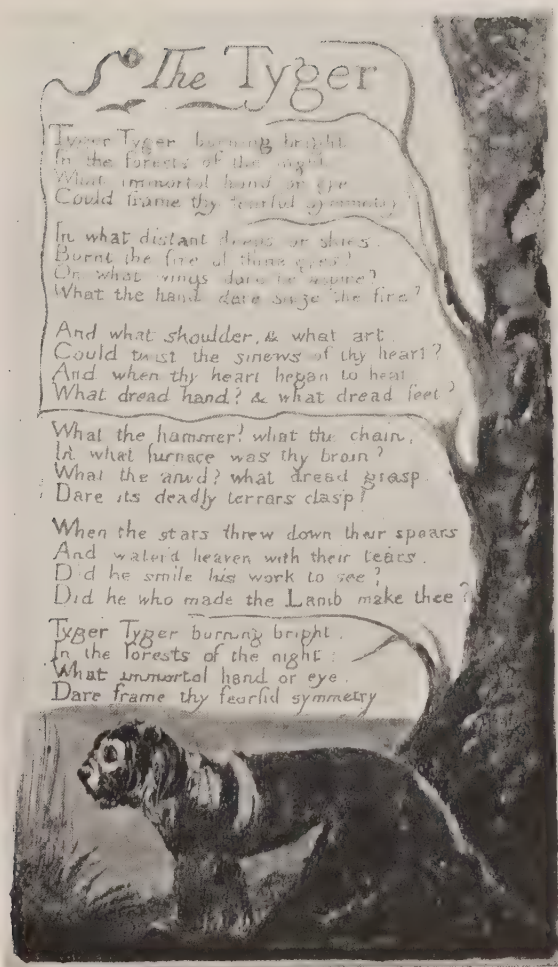 The Tyger
Tyger Tyger burning bright
In the forests of the night
What immortal hand or eye
Could frame thy fearful symmetry
In what distant deeps or skies.
Burnt the fire of thine eyes?
On what wings dare he aspire?
What the hand dare sieze the fire?
And what shoulder, & what art,
Could twist the sinews of thy heart?
And when thy heart began to beat
What dread hand? & what dread feet?
What the hammer? what the chain,
In what furnace was thy brain?
What the anvil? what dread grasp.
Dare its deadly terrors clasp!
When the stars threw down their spears
And water'd heaven with their tears.
Did he smile his work to see?
Did he who made the Lamb make thee?
Tyger Tyger burning bright.
In the forests of the night:
What immortal hand or eye.
Dare frame thy fearful symmetry